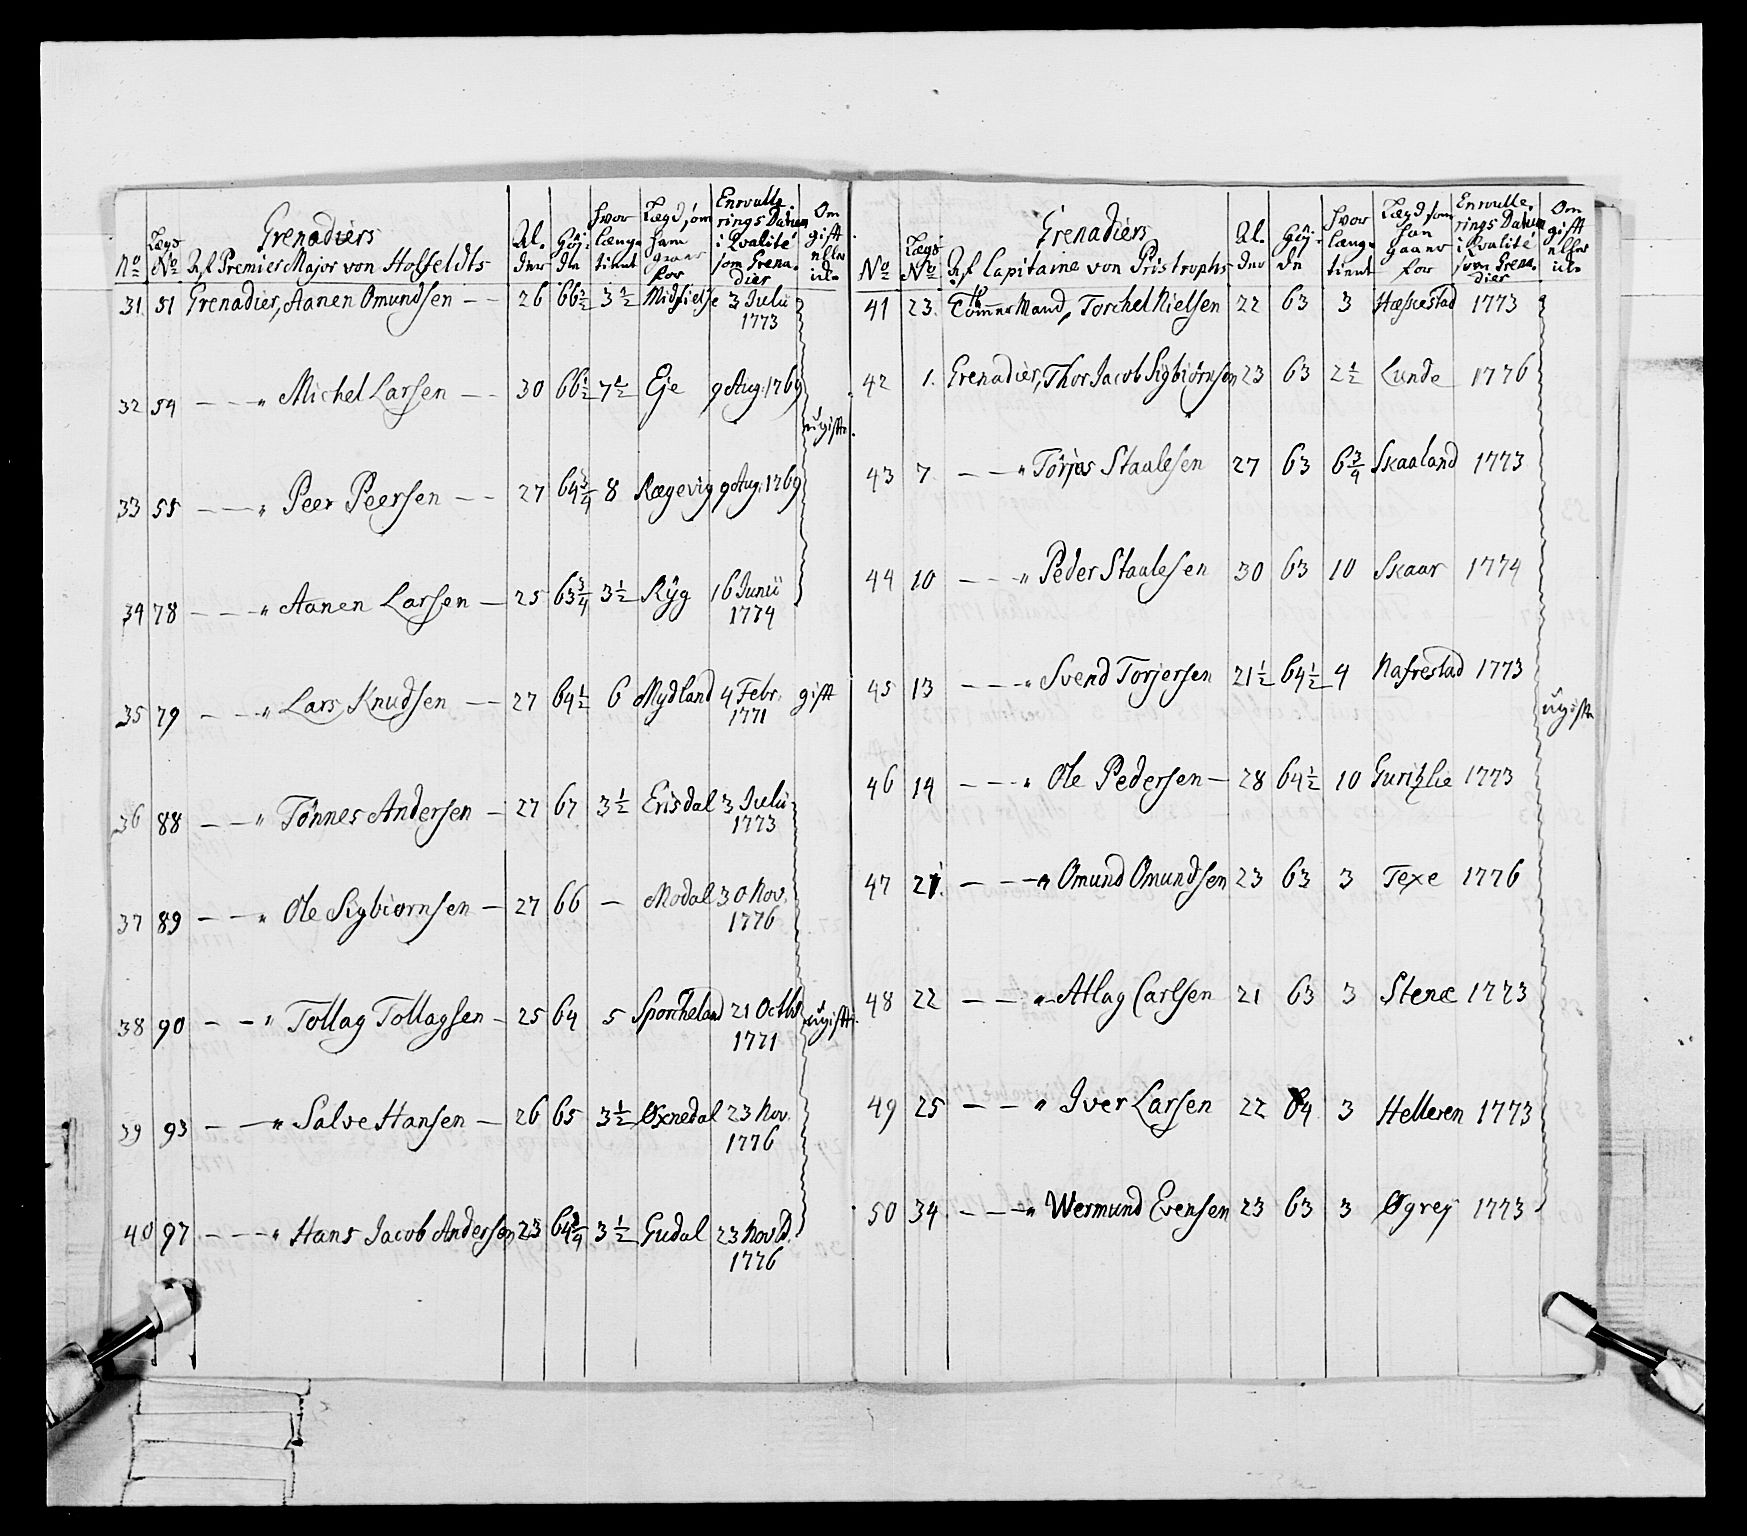 Grenadiers
No | Lægs No | Af Premier Major von Hoffeldts | Al-der | Höj-de | hvor længe tient | Lægd som han gaaer for | Enroulle-rings Datum i Qvalité som Grena-dier | Om gift eller ei
31 51 Grenadier, Aanen Omundsen -- 26 66½ 3½ Midsielje 3 Julii
1773
32 54 --- " Michel Larsen -- 30 66½ 7½ Eje 9 Aug: 1769
ugifte.
33 55 --- " Peer Peersen -- 27 64¾ 8 Rægevig 9 Aug: 1769
34 78 --- " Aanen Larsen - 25 63¾ 3½ Ryg 16 Junii
1774
35 79 --- " Lars Knudsen -- 27 64½ 6 Mydland 4 Febr. gift
1771
36 88 --- " Tönnes Andersen - 27 67 3½ Erisdal 3 Julii
1773
37 89 --- " Ole Sigbiørnsen - 27 66 - Modal 30 Nov.
1776
38 90 --- " Tollag Tollagsen - 25 64 5 Sporcheland 21 Octbr ugifte.
1771
39 93 --- " Salve Hansen - 26 65 3½ Øxnedal 23 Nov.
1776
40 97 --- " Hans Jacob Andersen 23 64¾ 3½ Gudal 23 Novb.
1776
Grenadiers
No | Lægs No | Af Capitaine von Pristrophs | Al-der | Höj-de | hvor længe tient | Lægd som han gaaer for | Enroulle-rings Datum i Qvalité som Grena-dier | Om gift eller ei
41 23. Tömmer Mand, Torchel Nielsen 22 63 3 Hæskestad 1773
42 1. Grenadier, Thor Jacob Sigbiørnsen 23 63 2½ Lunde 1776
43 7 --- " Törjas Staalesen 27 63 6¾ Skaaland 1773
44 10 --- " Peder Staalesen 30 63 10 Skaar 1774
45 13 --- " Svend Torjersen 21½ 64½ 4 Nafrestad 1773
ugifte
46 14 --- " Ole Pedersen - 28 64½ 10 Guritzlie 1773
47 21. --- " Omund Omundsen 23 63 3 Texe 1776
48 22 --- " Atlag Carlsen 21 63 3 Stene 1773
49 25 -- " Iver Larsen 22 64 3 Helleren 1773
50 34. --- " Wermund Evensen 23 63 3 Øgrey 1773